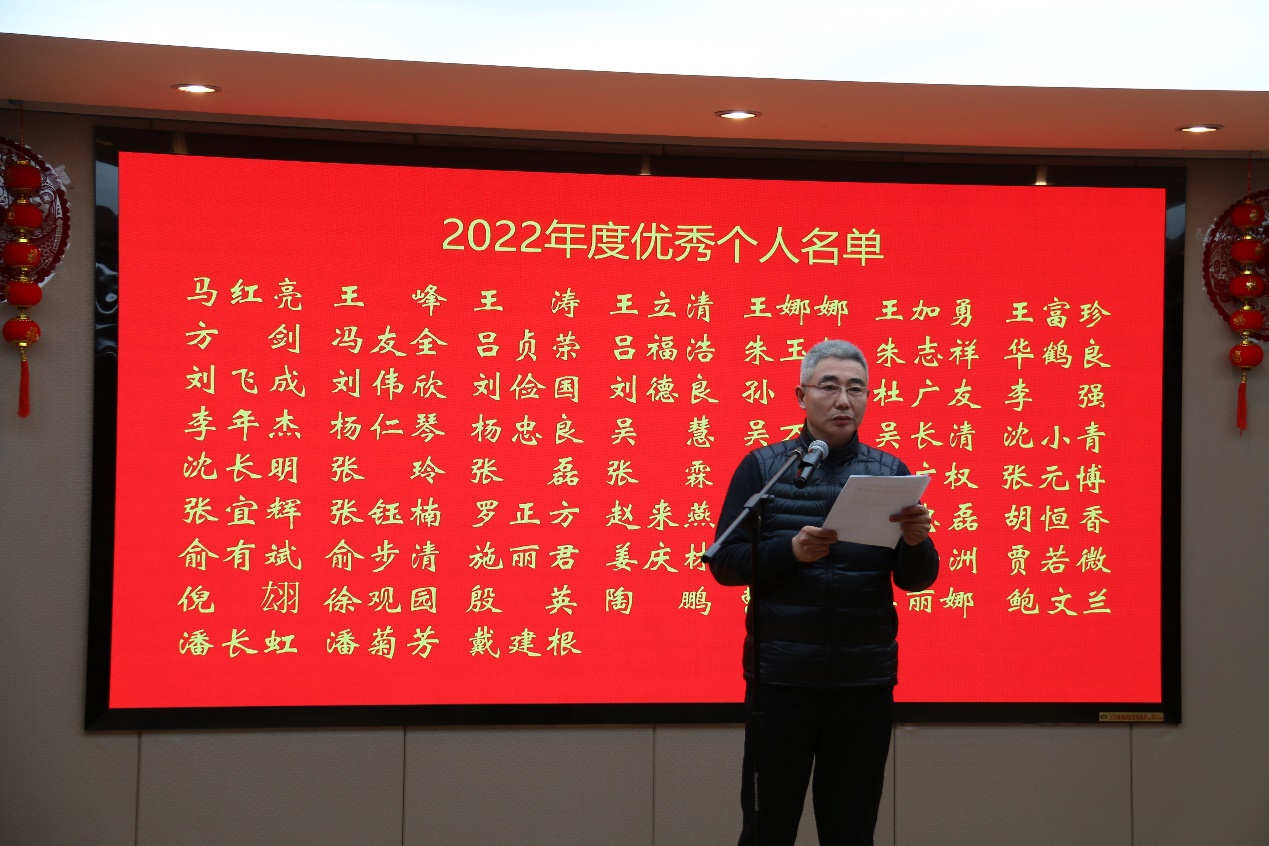 2022年度优秀个人名单
马红亮 王峰 王涛 王立清 王娜娜 王加勇 王富珍
方剑 冯友全 吕贞荣 吕福浩 朱玉 朱志祥 华鹤良
刘飞成 刘伟欣 刘俭国 刘德良 孙 杜广友 李强
李年杰 杨仁琴 杨忠良 吴慧 吴 吴长清 沈小青
沈长明 张玲 张磊 张霖 权 张元博
张宜辉 张钰楠 罗正方 赵来燕 磊 胡恒香
俞有斌 俞步清 施丽君 姜庆 洲 贾若微
倪翃 徐观园 殷英 陶鹏 丽娜 鲍文兰
潘长虹 潘菊芳 戴建根